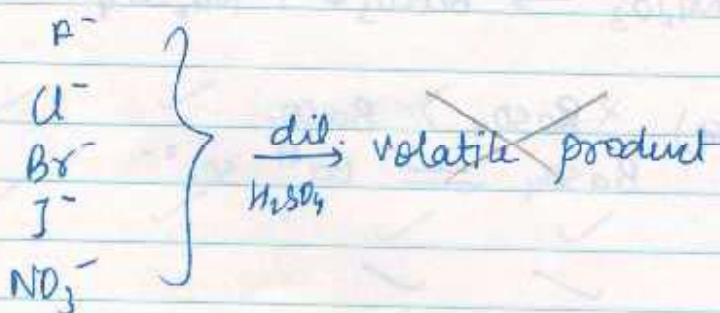 F⁻
Cl⁻
Br⁻
I⁻
NO₃⁻
dil. H₂SO₄ → volatile product